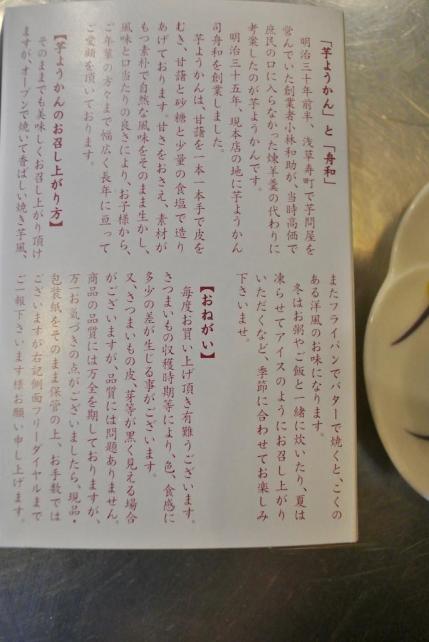 「芋ようかん」と「舟和」
明治三十年前半、浅草寿町で芋問屋を
営んでいた創業者小林和助が、当時高価で
庶民の口に入らなかった煉羊羹の代わりに
考案したのが芋ようかんです。
明治三十五年、現本店の地に芋ようかん
司舟和を創業しました。
芋ようかんは、甘藷を一本一本手で皮を
むき、甘藷と砂糖と少量の食塩で造り
あげております。甘さをおさえ、素材が
もつ素朴で自然な風味をそのまま生かし、
風味と口当たりの良さにより、お子様から、
ご年輩の方々まで幅広く長年に亘って
ご愛顧を頂いております。
【芋ようかんのお召し上がり方】
そのままでも美味しくお召し上がり頂け
ますが、オーブンで焼いて香ばしい焼き芋風、
またフライパンでバターで焼くと、こくの
ある洋風のお味になります。
冬はお粥やご飯と一緒に炊いたり、夏は
凍らせてアイスのようにお召し上がり
いただくなど、季節に合わせてお楽しみ
下さいませ。
【おねがい】
毎度お買い上げ頂き有難うございます。
さつまいもの収穫時期等により、色、食感に
多少の差が生じる事がございます。
又、さつまいもの皮、芽等が黒く見える場合
がございますが、品質には問題ありません。
商品の品質には万全を期しておりますが、
万一お気づきの点がございましたら、現品・
包装紙をそのまま保管の上、お手数では
ございますが右記側面フリーダイヤルまで
ご一報下さいます様お願い申し上げます。